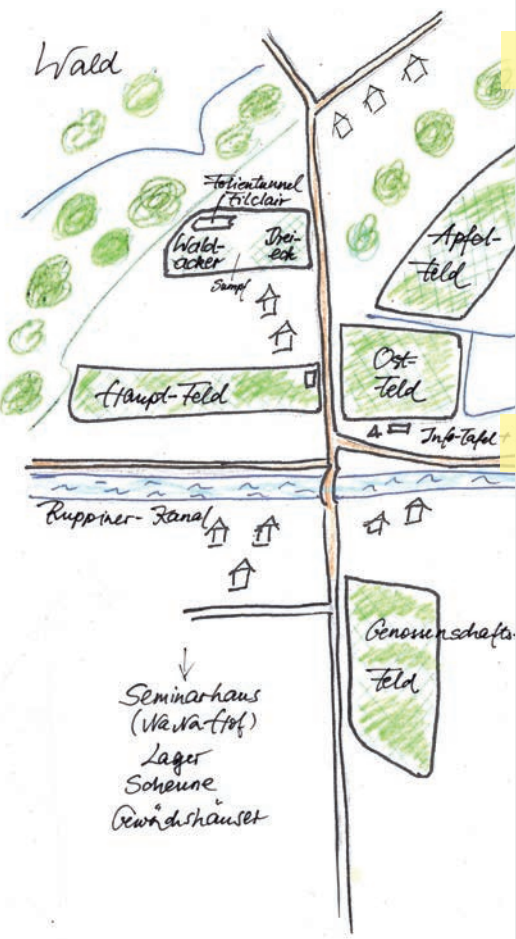 Wald
Folientunnel
Filclair
Wald-
acker
Drei-
eck
Sumpf
Apfel-
feld
Ost-
Feld
Haupt-Feld
Info-Tafel +
Ruppiner-Kanal
Genossenschafts-
Feld
Seminarhaus
(NaNa-Hof)
Lager
Scheune
Gewächshäuser